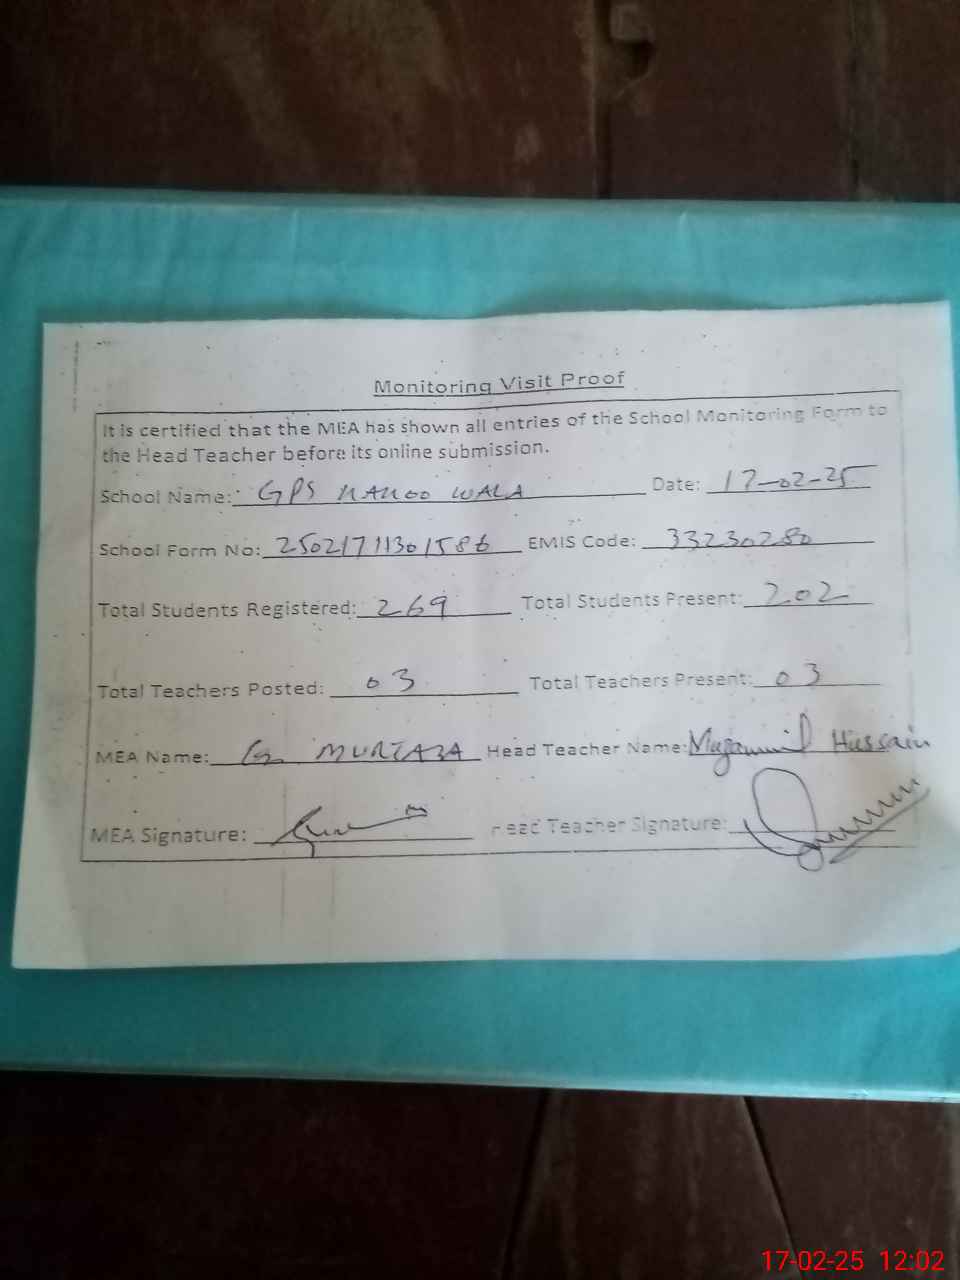 Monitoring Visit Proof
It is certified that the MEA has shown all entries of the School Monitoring Form to
the Head Teacher before its online submission.
School Name: GPS WALA Date: 17-02-25
School Form No: 25021711301586 EMIS Code: 33230280
Total Students Registered: 269 Total Students Present: 202
Total Teachers Posted: 03 Total Teachers Present: 03
MEA Name: G. MURTAZA Head Teacher Name: Muzammil Hussain
MEA Signature: Head Teacher Signature:
17-02-25 12:02